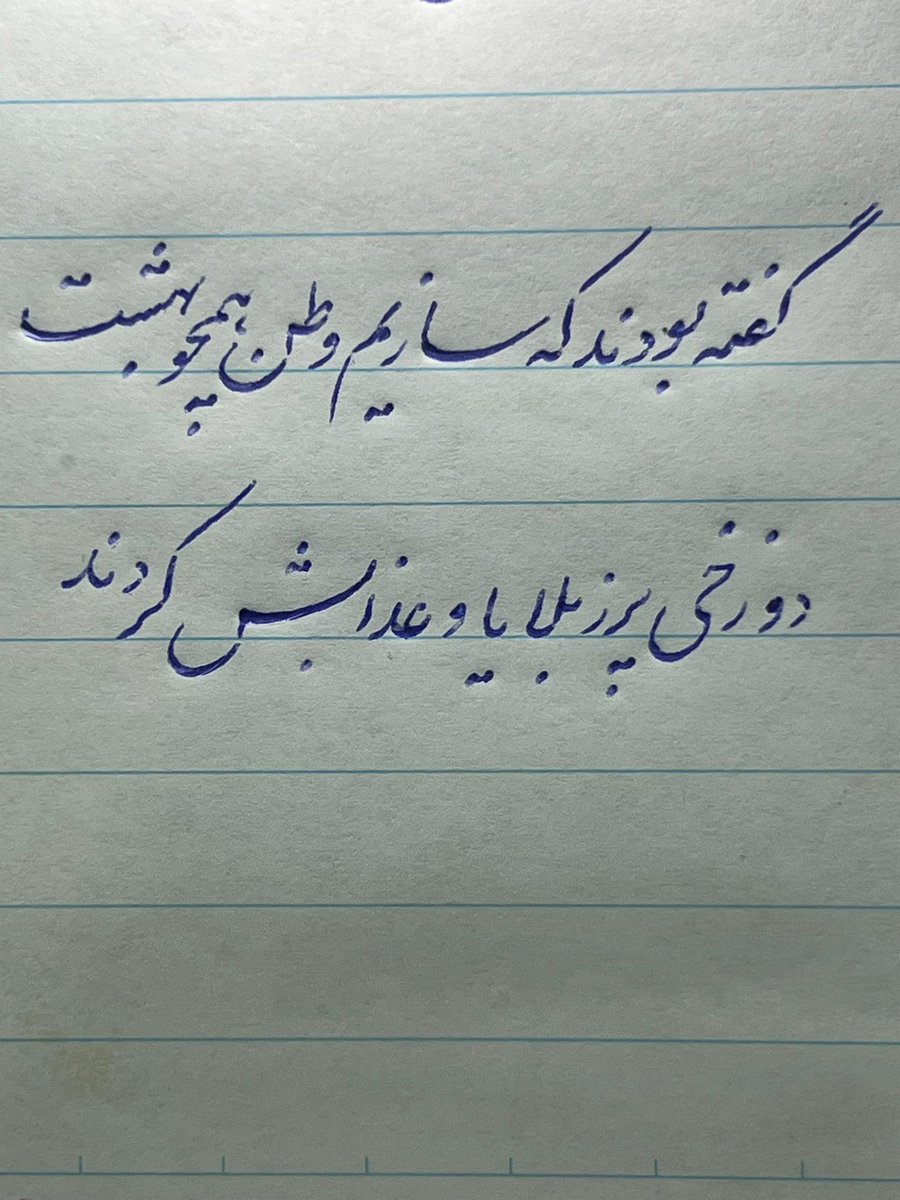 گفته بودند که سازیم وطن همچو بهشت
دوزخی پر ز بلایا و عذابش کردند